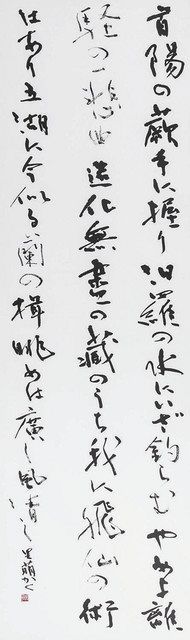 首陽の蕨手に握り汨羅の水にいざ釣らむやめよ離
騒の一悲曲造化無盡の藏のうち我に飛仙の術
はあり五湖に今似る蘭の楫眺めは廣し風青し